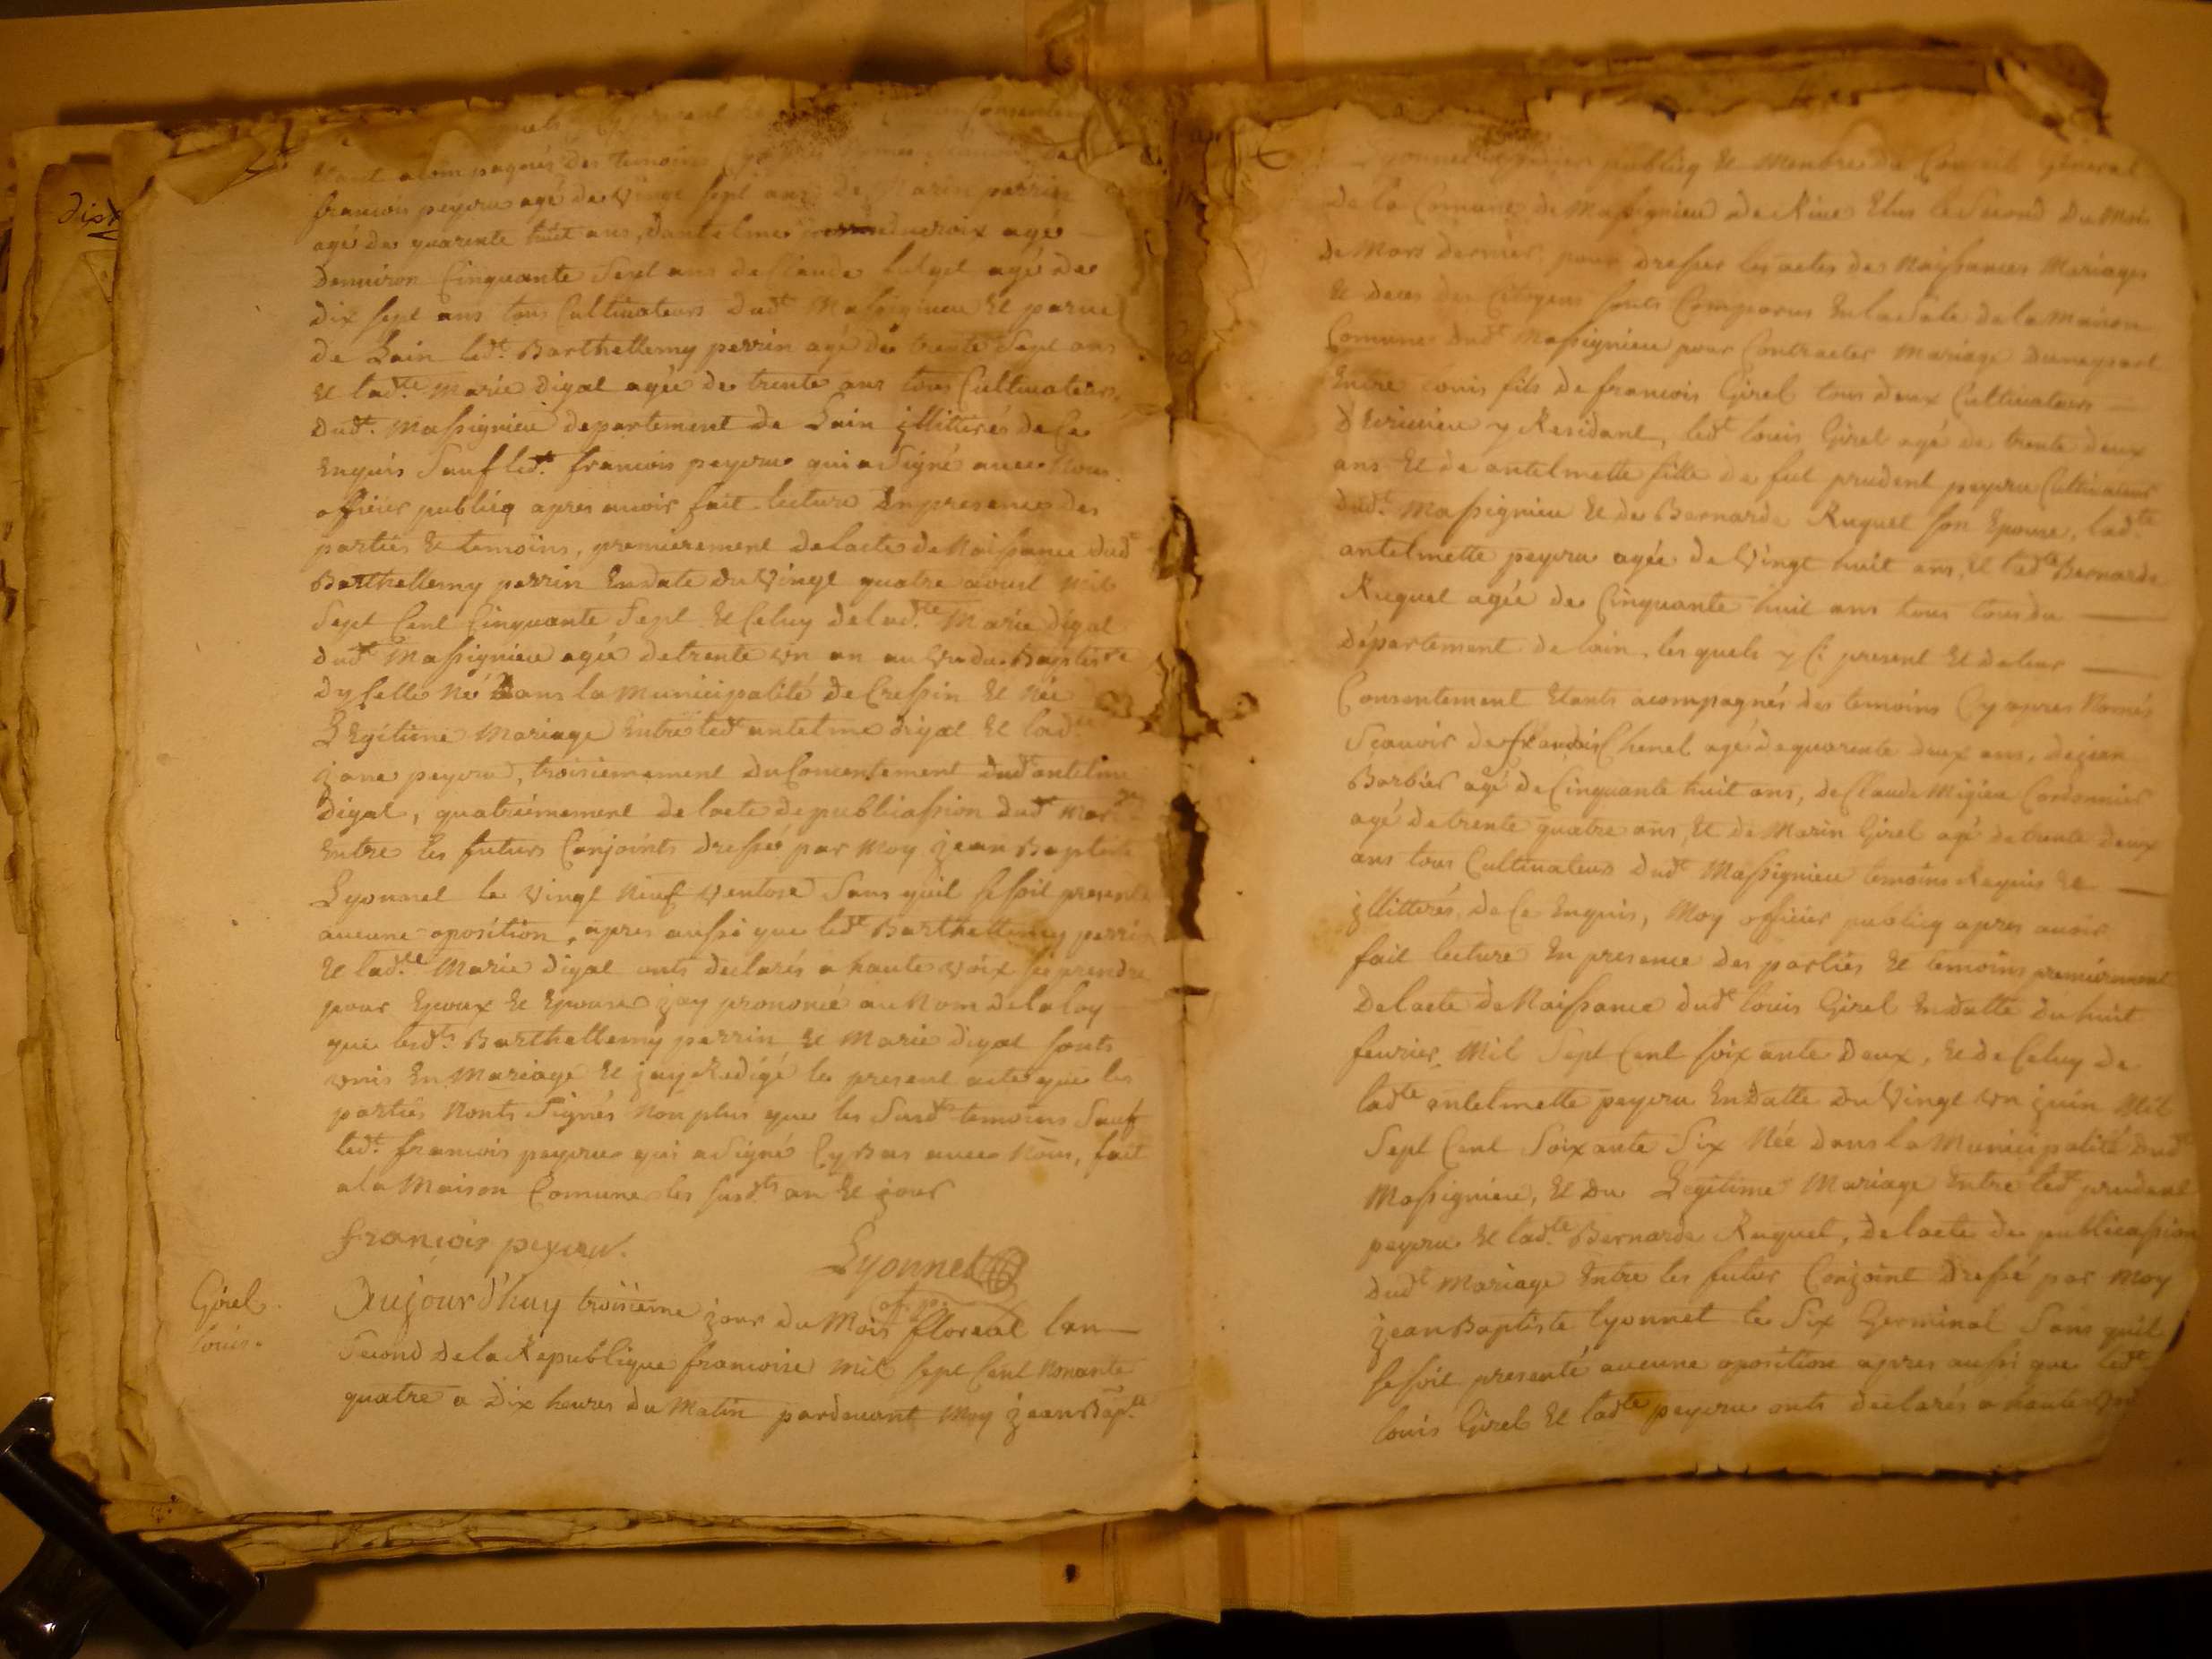 Etant acompagnés des temoins
francois peyeru agé de Vingt sept ans de Marin perrin
agé de quarente huit ans, dantelme ducroix agé
denviron Cinquante Sept ans de Claude agé de
dix sept ans tous Cultivateurs dudt Massignieu
de Lain ledt. Barthellemy perrin agé de trente Sept ans
Et ladte. Marie digat agée de trente ans tous Cultivateurs
dudt. Massignieu departement de Lain jllitterés de Ce
Enquis Sauf ledt. francois peyeru qui a Signé avec Nous
officier publicq apres avoir fait lecture En presence des
parties Et temoins, premierement de lacte de Naissance dudt
Barthellemy perrin En date du Vingt quatre aoust Mil
Sept Cent Cinquante Sept Et Celuy de ladte Marie digat
dudt Massignieu agée de trente un an
dyselle Né Dans la Municipalité de Cressin Et Née
LEgitime Mariage Entre ledt antelme digat Et ladte
jane peyeru, troisiemement du Concentement dudt antelme
digat, quatriémement de lacte de publicassion dudt
Entre les futurs Conjoints dressé par Moy jean Baptiste
Lyonnet le Vingt Neuf Ventose Sans quil se soit presenté
aucune oposition, apres aussi que ledt Barthellemy perrin
Et ladte Marie digat onts declarés a haute voix se prendre
pour Epoux Et Epouse jay prononcé au Nom de la loy
que lesdts. Barthellemy perrin Et Marie digat sonts
unis En Mariage Et jay Redigé le present acte que les
parties Nonts Signés Non plus que les Susdts temoins Sauf
ledt. francois peyeru qui a Signé Cy Bas avec Nous, fait
a la Maison Comune les susdts an Et jour
françois peyeru.
Lyonnet
of. p.
Girel
louis.
Aujourd'huy troisieme jour du Mois floreal lan
Second de la Republique francoise Mil sept Cent Nonante
quatre a Dix heures du Matin pardevant Moy jean Bapte
Lyonnet officier publicq Et Membre du Conseil General
De la Comune de Massignieu de Rive Elus le Second Du Mois
de Mars dernier pour dresser les actes de Naissances Mariages
Et deces des Citoyens sonts Comparus En la Sale de la Maison
Comune dudt Massignieu pour Contracter Mariage dune part
Entre louis fils de francois Girel tous deux Cultivateurs
y Residant, ledt louis Girel agé de trente deux
ans Et de antelmette fille de fut prudent peyeru Cultivateur
dudt. Massignieu Et de Bernarde Ruguet son Epouse, ladte
antelmette peyeru agée de Vingt huit ans, Et ladte Bernarde
Ruguet agée de Cinquante huit ans tous tous du
département de lain, les quels y Ci present Et de leur
Consentement Etants acompagnés des temoins Cy apres Només
Scavoir de francois Chenel agé de quarente deux ans, de jean
Barbier agé de Cinquante huit ans, de Claude Migieu Cordonnier
agé de trente quatre ans, Et de Marin Girel agé de trente deux
ans tous Cultivateurs dudt Massignieu temoins Requis Et
jllitterés de Ce Enquis, Moy officier publicq apres avoir
fait lecture En presence des parties Et temoins premierement
De lacte de Naissance dudt louis Girel En datte du huit
fevrier Mil Sept Cent soixante Deux, Et de Celuy de
ladte antelmette peyeru En datte Du Vingt un juin Mil
Sept Cent Soixante Six Née dans la Municipalité dudt
Massignieu, Et du Legitime Mariage Entre ledt prudent
peyeru Et ladte. Bernarde Ruguet, de lacte de publicassion
dudt Mariage Entre les futur Conjoint dressé par Moy
jean Baptiste lyonnet le Six Germinal Sans quil
se soit presenté aucune oposition apres aussi que ledt
louis Girel Et ladte peyeru onts declarés a haute voix